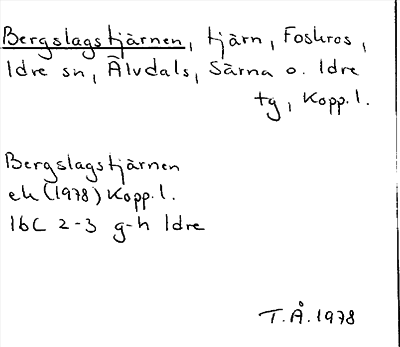 Bergslagstjärnen, tjärn, Foskros,
Idre sn, Älvdals, Särna o. Idre
tg, Kopp.l.
Bergslagstjärnen
ek (1978) Kopp.l.
16C 2-3 g-h Idre
T.Å.1978